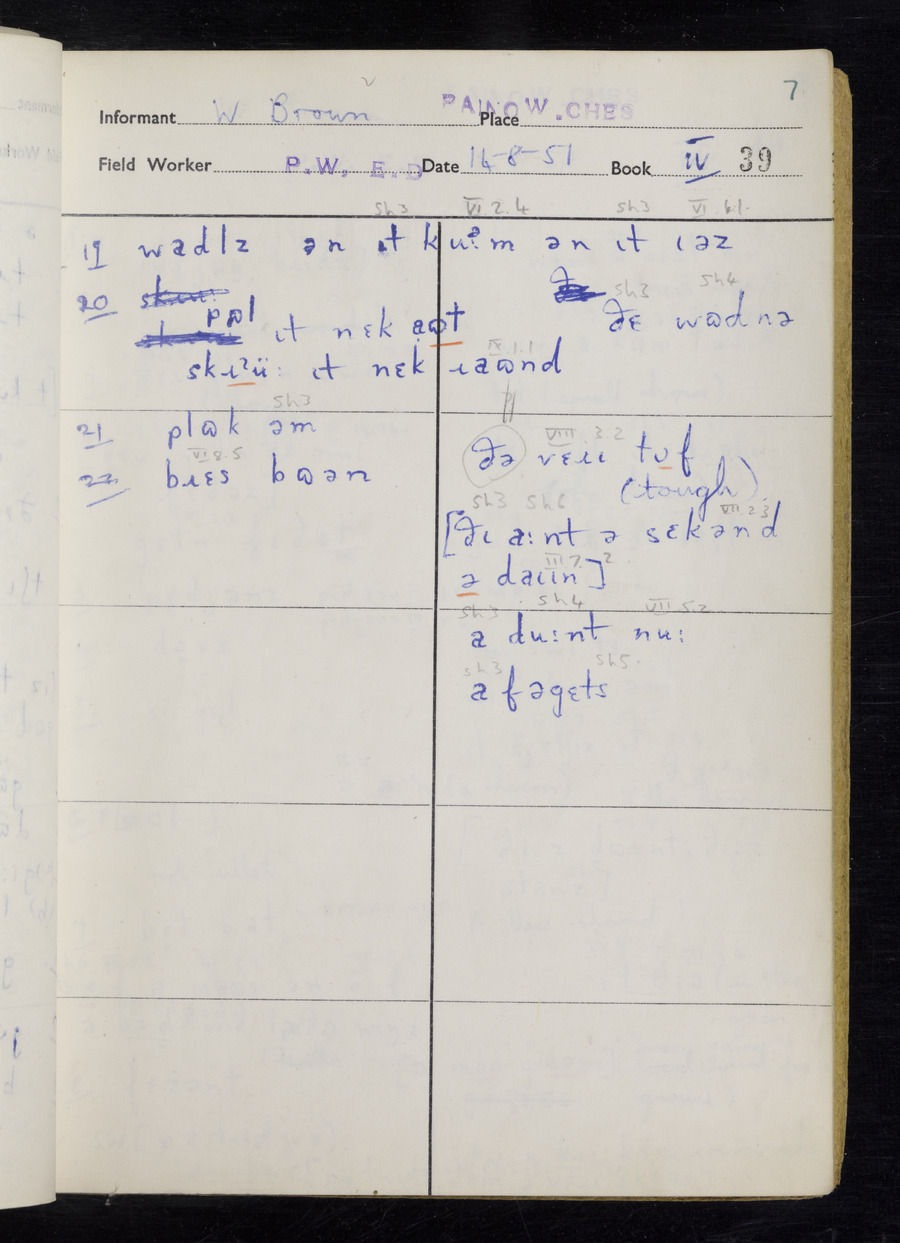 7
Informant W Brown Place RAINOW.CHES
Field Worker P.W, E.D Date 14-8-51 Book IV 39
sh3 VI.2.4 sh3 VI.4.1
19 wadlz ən ɪt kuˀm ən ɪt ɪəz
sh3 sh4
20 pɷl ɪt nɛk aɷt
ðɛ wɷdnə
IX.1.1
skɹɪ²ü: ɪt nɛk ɹaɷnd
sh3
21 plɷk əm
VI 8.5
22 bɹɛs bɷən
VIII.3.2
ðə vɛɹɪ tʊf
(tough)
sh3 sh6 VII.2.3
[ðɪ a:nt ə sɛkənd
III 7.2
ə daɪɪn]
sh3 sh4 VII.5.2
a du:nt nu:
sh3 sh5.
a fəgɛts